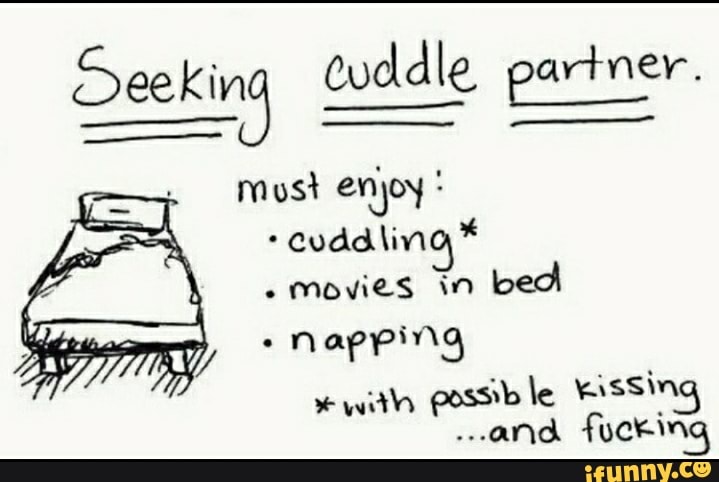 Seeking cuddle partner.
must enjoy:
• cuddling*
• movies in bed
• napping
*with possible kissing
...and fucking
ifunny.co